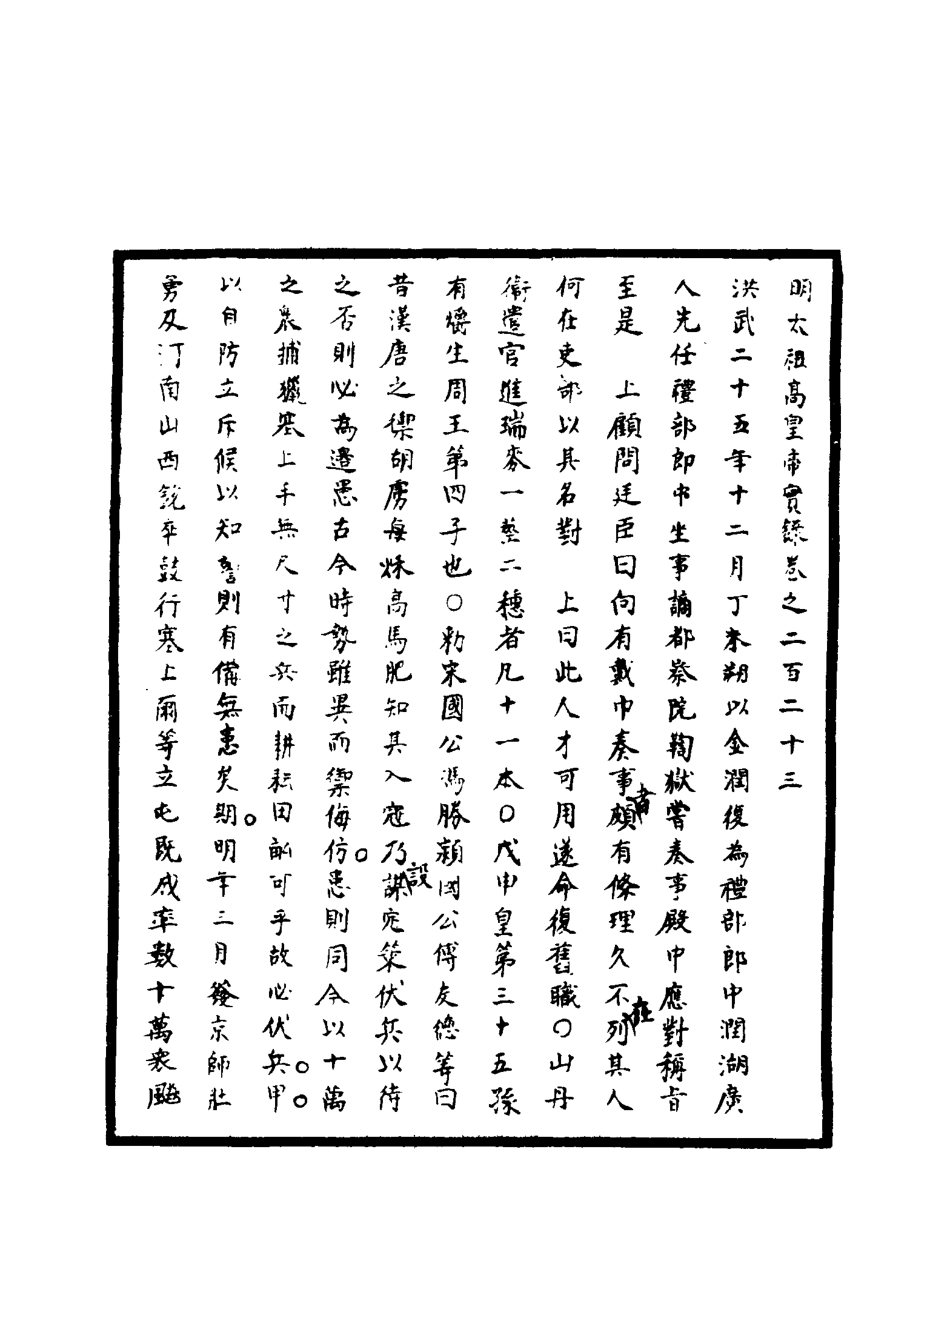 明太祖高皇帝實錄卷之二百二十三
洪武二十五年十二月丁未朔以金潤復為禮部郎中潤湖廣
人先任禮部郎中坐事謫都察院鞫獄嘗奏事殿中應對稱旨
至是　上顧問廷臣曰向有戴巾奏事者頗有條理久不在列其人
何在吏部以其名對　上曰此人才可用遂命復舊職○山丹
衞遣官進瑞麥一莖二穗者凡十一本○戊申皇第三十五孫
有爝生周王第四子也○勑宋國公馮勝潁國公傅友德等曰
昔漢唐之禦胡虜每秋高馬肥知其入寇乃設謀定策伏兵以待
之否則必為邊患古今時勢雖異而禦侮仿患則同今以十萬
之衆捕獵塞上手無尺寸之兵而耕耘田畝可乎故必伏兵甲
以自防立斥候以知警則有備無患矣期明年三月發京師壯
勇及河南山西銳卒鼓行塞上爾等立屯既成率數十萬衆颺